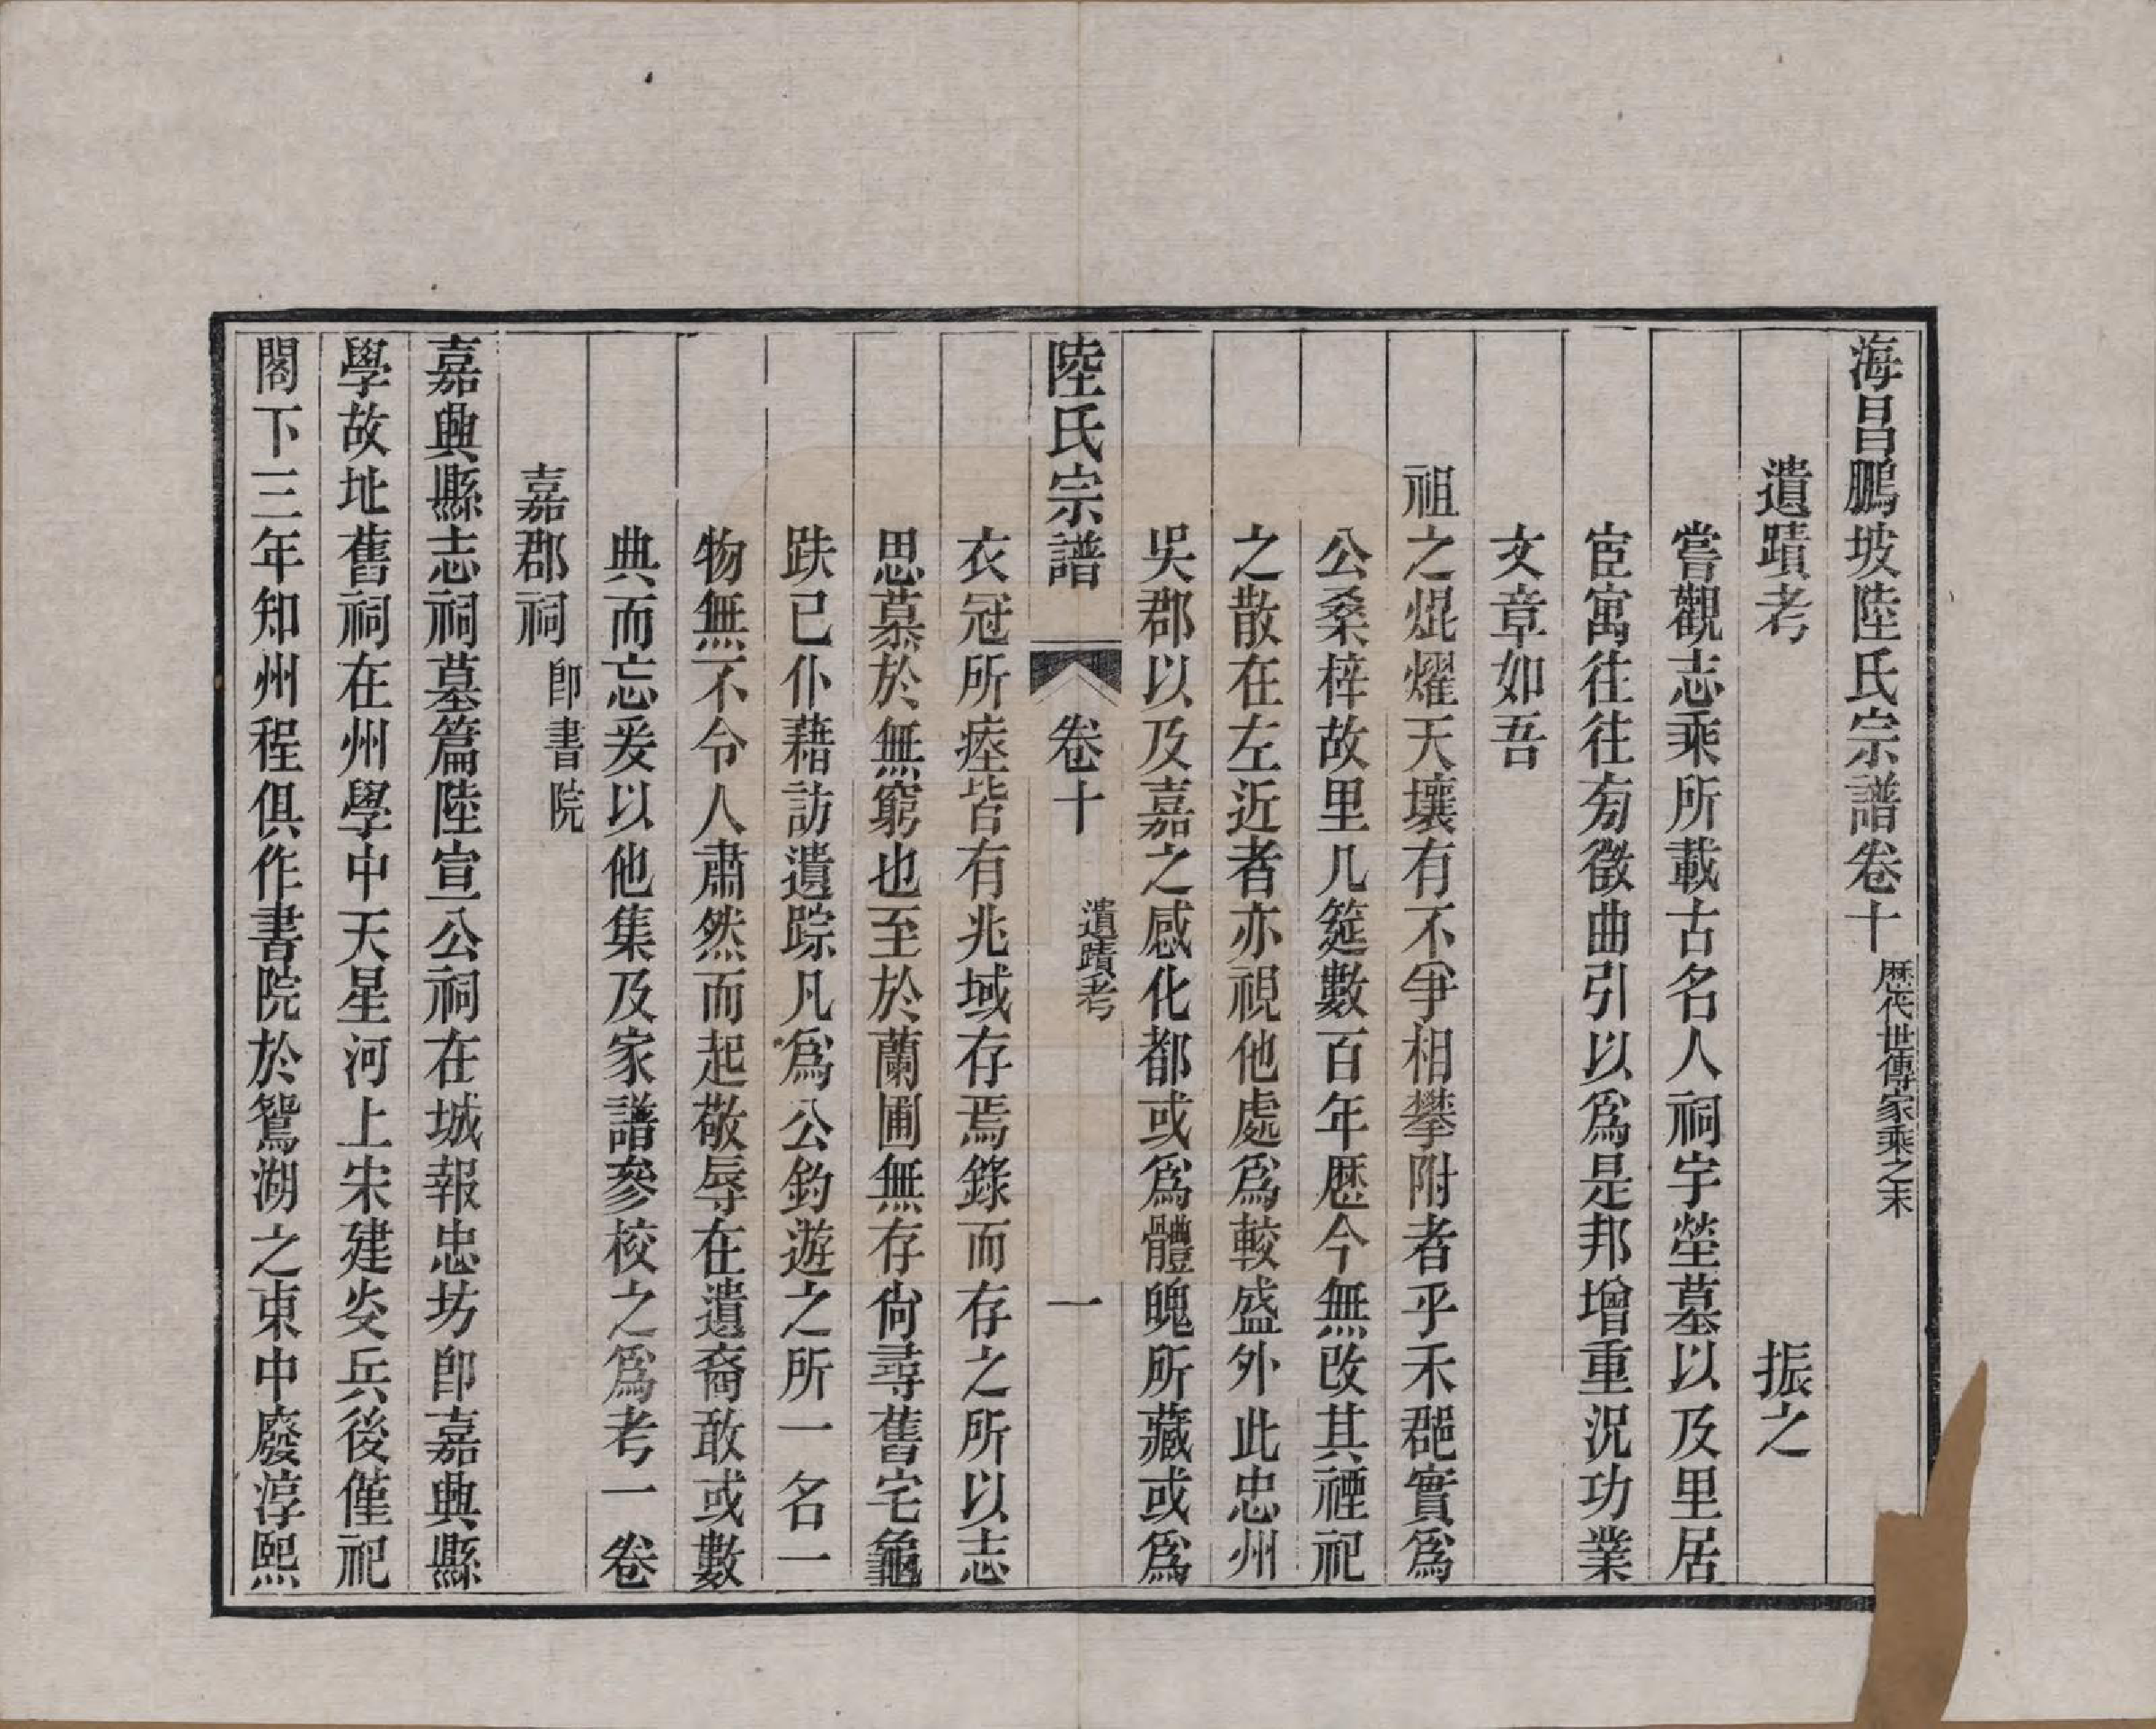 海昌鵬坡陸氏宗譜卷十 歷代世傳家乘之末
遺蹟考 振之
嘗觀志乘所載古名人祠宇塋墓以及里居
宦寓往往旁徵曲引以爲是邦增重況功業
文章如吾
祖之焜燿天壤有不爭相攀附者乎禾郡實爲
公桑梓故里几筵數百年歷今無改其禋祀
之散在左近者亦視他處爲較盛外此忠州
吳郡以及嘉之感化都或爲體魄所藏或爲
陸氏宗譜 卷十 遺蹟考 一
衣冠所瘞皆有兆域存焉錄而存之所以志
思慕於無窮也至於蘭圃無存尙尋舊宅龜
趺已仆藉訪遺踪凡爲公釣遊之所一名一
物無不令人肅然而起敬辱在遺裔敢或數
典而忘爰以他集及家譜參校之爲考一卷
嘉郡祠 卽書院
嘉興縣志祠墓篇陸宣公祠在城報忠坊卽嘉興縣
學故址舊祠在州學中天星河上宋建炎兵後僅祀
閣下三年知州程俱作書院於鴛湖之東中廢淳熙